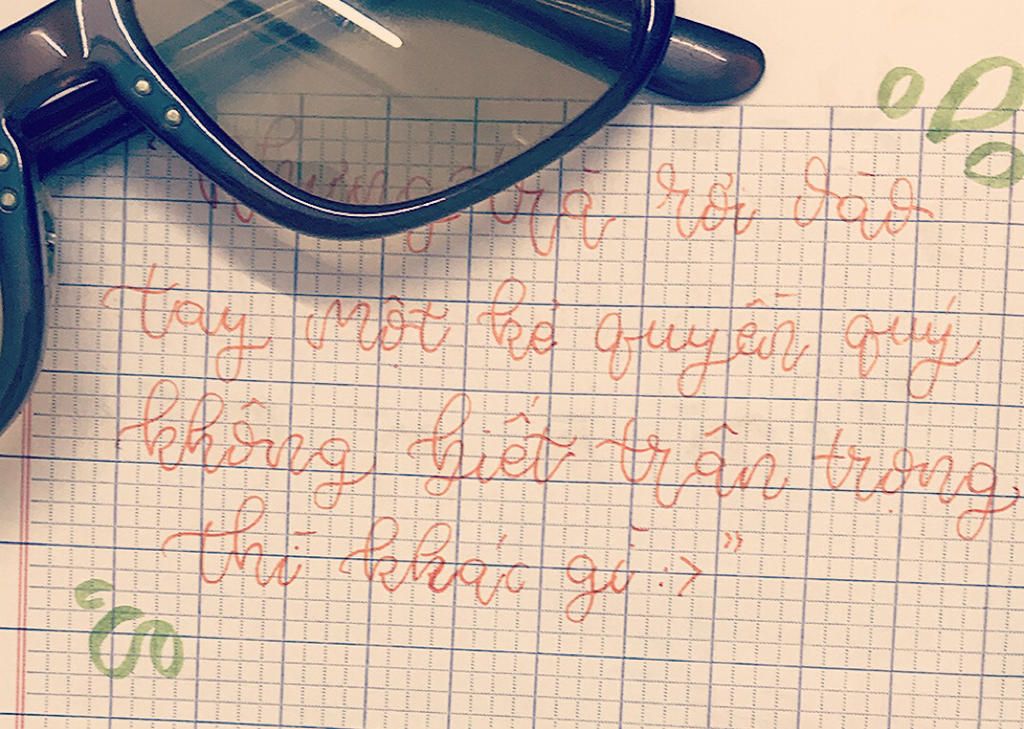 Nhưng trà rơi vào
tay một kẻ quyền quý
không biết trân trọng,
thì khác gì :>”